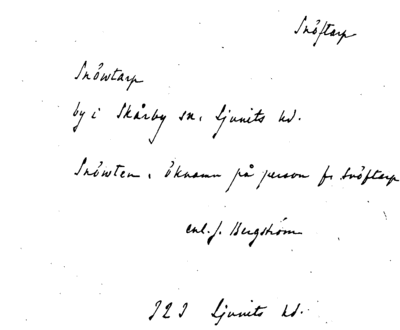 Snöftarp
Snöwtarp
by i Skårby sn. Ljunits hd.
Snöwten, öknamn på person fr. Snöftarp
enl. J. Bergström
Ljunits hd.